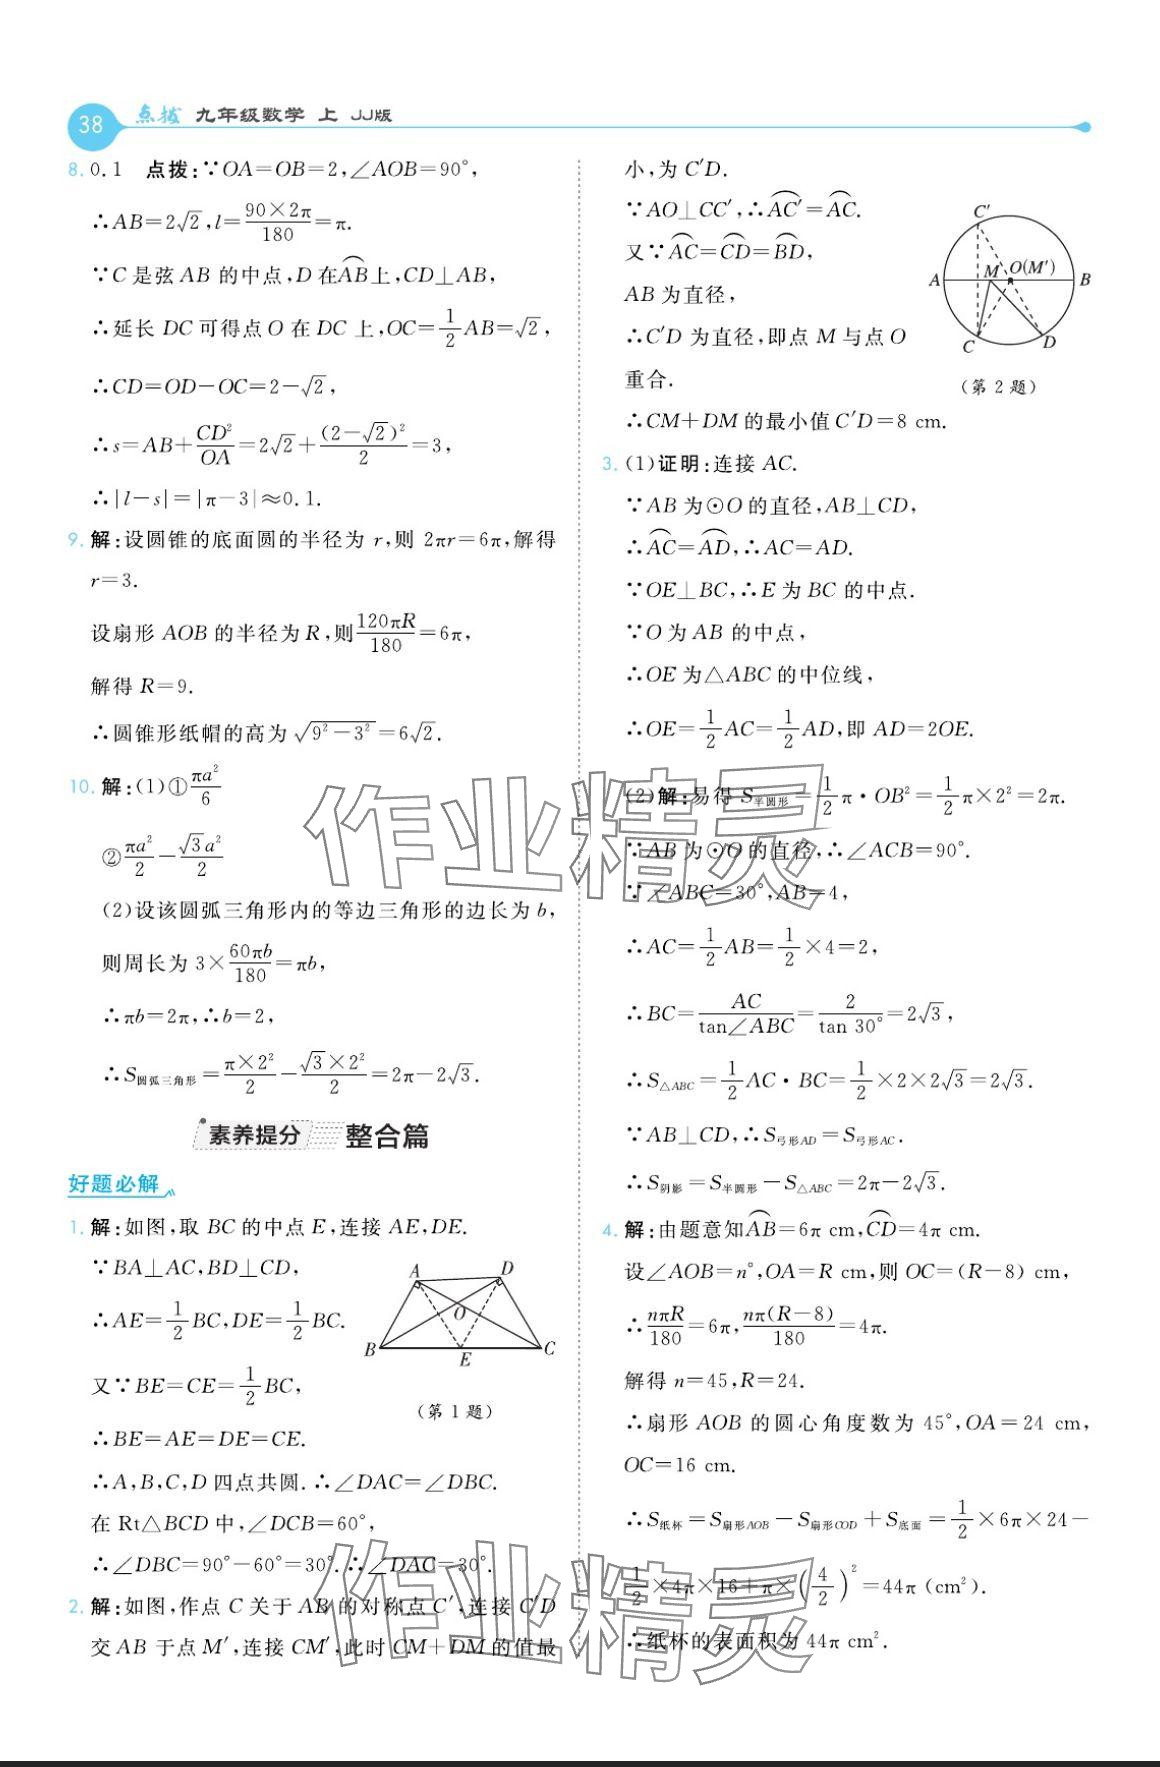 38 点拨 九年级数学 上 JJ版
8. 0.1 点拨:∵OA=OB=2,∠AOB=90°,
∴AB=2√2,l=\frac{90×2π}{180}=π.
∵C是弦AB的中点,D在\overset{⌢}{AB}上,CD⊥AB,
∴延长DC可得点O在DC上,OC=\frac{1}{2}AB=√2,
∴CD=OD-OC=2-√2,
∴s=AB+\frac{CD²}{OA}=2√2+\frac{(2-√2)²}{2}=3,
∴|l-s|=|π-3|≈0.1.
9. 解:设圆锥的底面圆的半径为r,则2πr=6π,解得
r=3.
设扇形AOB的半径为R,则\frac{120πR}{180}=6π,
解得R=9.
∴圆锥形纸帽的高为\sqrt{9²-3²}=6√2.
10. 解:(1)①\frac{πa²}{6}
②\frac{πa²}{2}-\frac{√3a²}{2}
(2)设该圆弧三角形内的等边三角形的边长为b,
则周长为3×\frac{60πb}{180}=πb,
∴πb=2π,∴b=2,
∴S圆弧三角形=\frac{π×2²}{2}-\frac{√3×2²}{2}=2π-2√3.
素养提分 整合篇
好题必解
1. 解:如图,取BC的中点E,连接AE,DE.
∵BA⊥AC,BD⊥CD,
∴AE=\frac{1}{2}BC,DE=\frac{1}{2}BC.
又∵BE=CE=\frac{1}{2}BC,
∴BE=AE=DE=CE.
∴A,B,C,D四点共圆.∴∠DAC=∠DBC.
在Rt△BCD中,∠DCB=60°,
∴∠DBC=90°-60°=30°.∴∠DAC=30°.
A D O B E C
(第1题)
2. 解:如图,作点C关于AB的对称点C′,连接C′D
交AB于点M′,连接CM′,此时CM+DM的值最
小,为C′D.
∵AO⊥CC′,∴\overset{⌢}{AC′}=\overset{⌢}{AC}.
又∵\overset{⌢}{AC}=\overset{⌢}{CD}=\overset{⌢}{BD},
AB为直径,
∴C′D为直径,即点M与点O
重合.
C′ A M O(M′) B C D
(第2题)
∴CM+DM的最小值C′D=8 cm.
3. (1)证明:连接AC.
∵AB为⊙O的直径,AB⊥CD,
∴\overset{⌢}{AC}=\overset{⌢}{AD},∴AC=AD.
∵OE⊥BC,∴E为BC的中点.
∵O为AB的中点,
∴OE为△ABC的中位线,
∴OE=\frac{1}{2}AC=\frac{1}{2}AD,即AD=2OE.
(2)解:易得S半圆形=\frac{1}{2}π·OB²=\frac{1}{2}π×2²=2π.
∵AB为⊙O的直径,∴∠ACB=90°.
∵∠ABC=30°,AB=4,
∴AC=\frac{1}{2}AB=\frac{1}{2}×4=2,
∴BC=\frac{AC}{tan∠ABC}=\frac{2}{tan 30°}=2√3,
∴S△ABC=\frac{1}{2}AC·BC=\frac{1}{2}×2×2√3=2√3.
∵AB⊥CD,∴S弓形AD=S弓形AC.
∴S阴影=S半圆形-S△ABC=2π-2√3.
4. 解:由题意知\overset{⌢}{AB}=6π cm,\overset{⌢}{CD}=4π cm.
设∠AOB=n°,OA=R cm,则OC=(R-8) cm,
∴\frac{nπR}{180}=6π,\frac{nπ(R-8)}{180}=4π.
解得n=45,R=24.
∴扇形AOB的圆心角度数为45°,OA=24 cm,
OC=16 cm.
∴S纸杯=S扇形AOB-S扇形COD+S底面=\frac{1}{2}×6π×24-
\frac{1}{2}×4π×16+π×(\frac{4}{2})²=44π(cm²).
∴纸杯的表面积为44π cm².
作业精灵
作业精灵